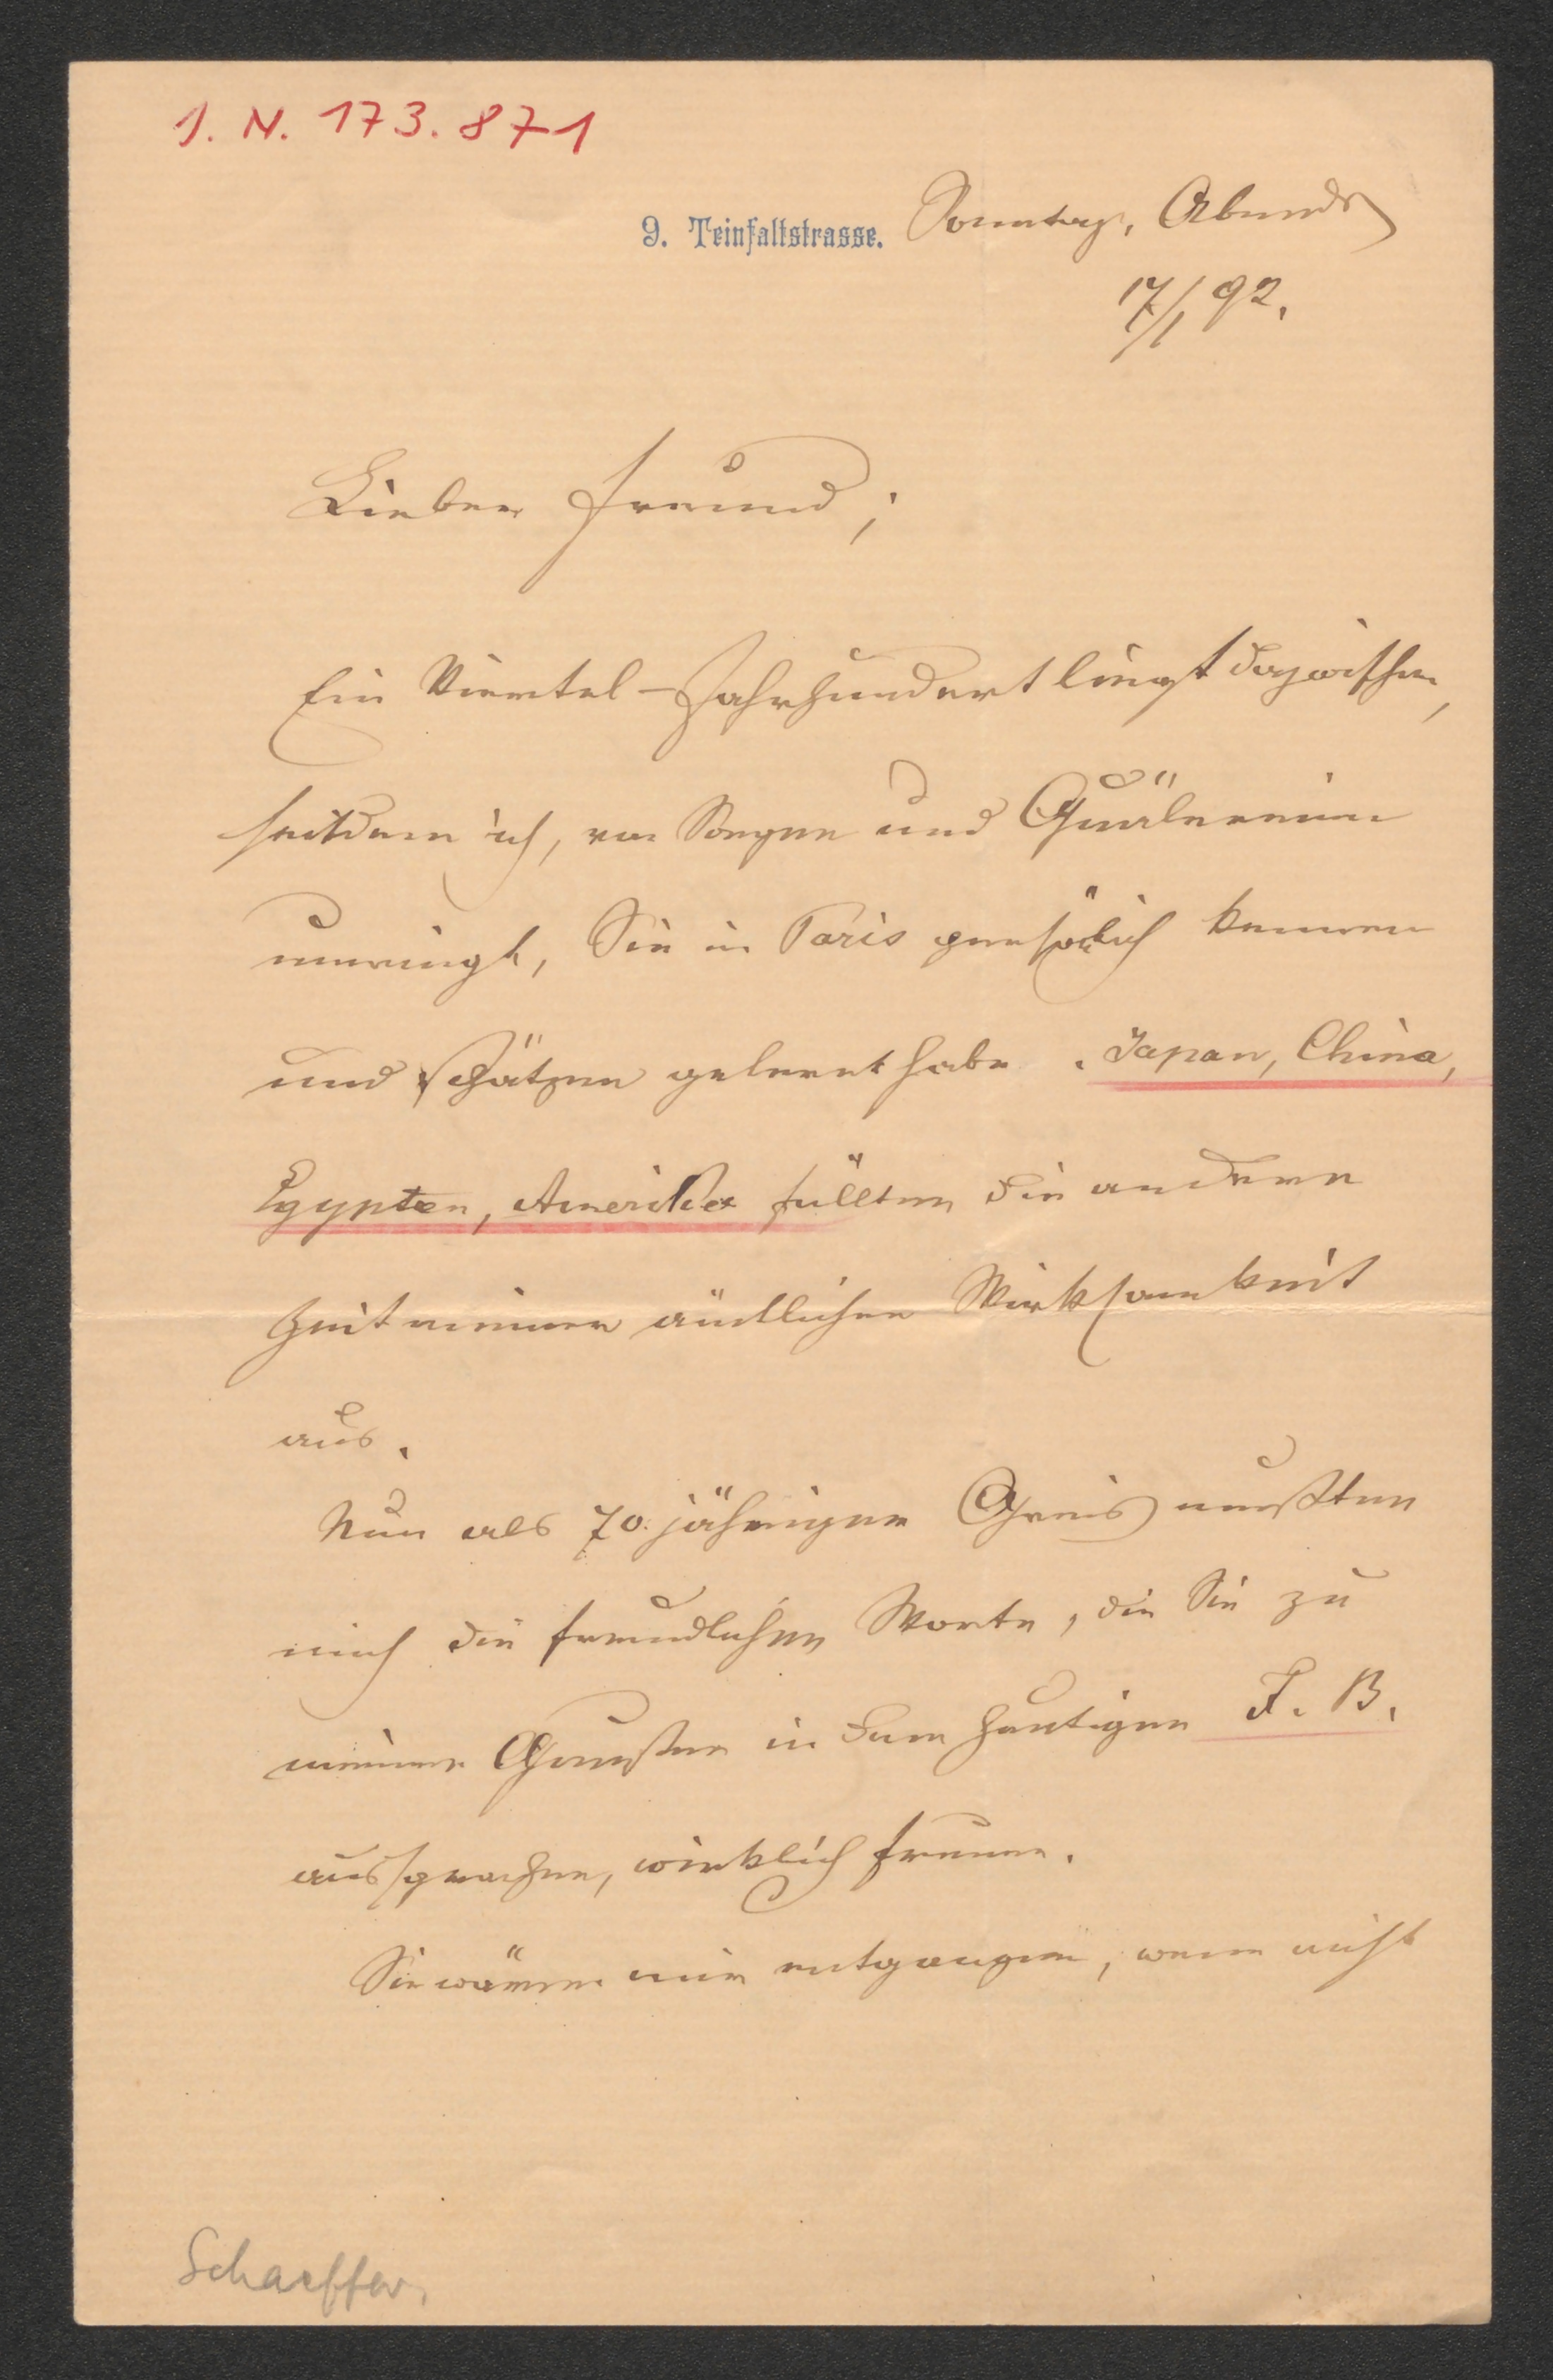 I. N. 173.871
9. Teinfaltstrasse. Sonntag, Abends
17/1 92.
Lieber Freund;
Ein Viertel-Jahrhundert liegt dazwischen,
seitdem ich, von Sorgen und Quälereien
umringt, Sie in Paris persönlich kennen
und schätzen gelernt habe. Japan, China,
Egypten, Amerika füllten die andere
Zeit meiner amtlichen Wirksamkeit
aus.
Nun als 70. jähriger Greis mußten
mich die freundlichen Worte, die Sie zu
meinen Gunsten in dem heutigen F. B.
aussprachen, wirklich freuen.
Sie wären mir entgangen, wenn nicht
Schaeffer.